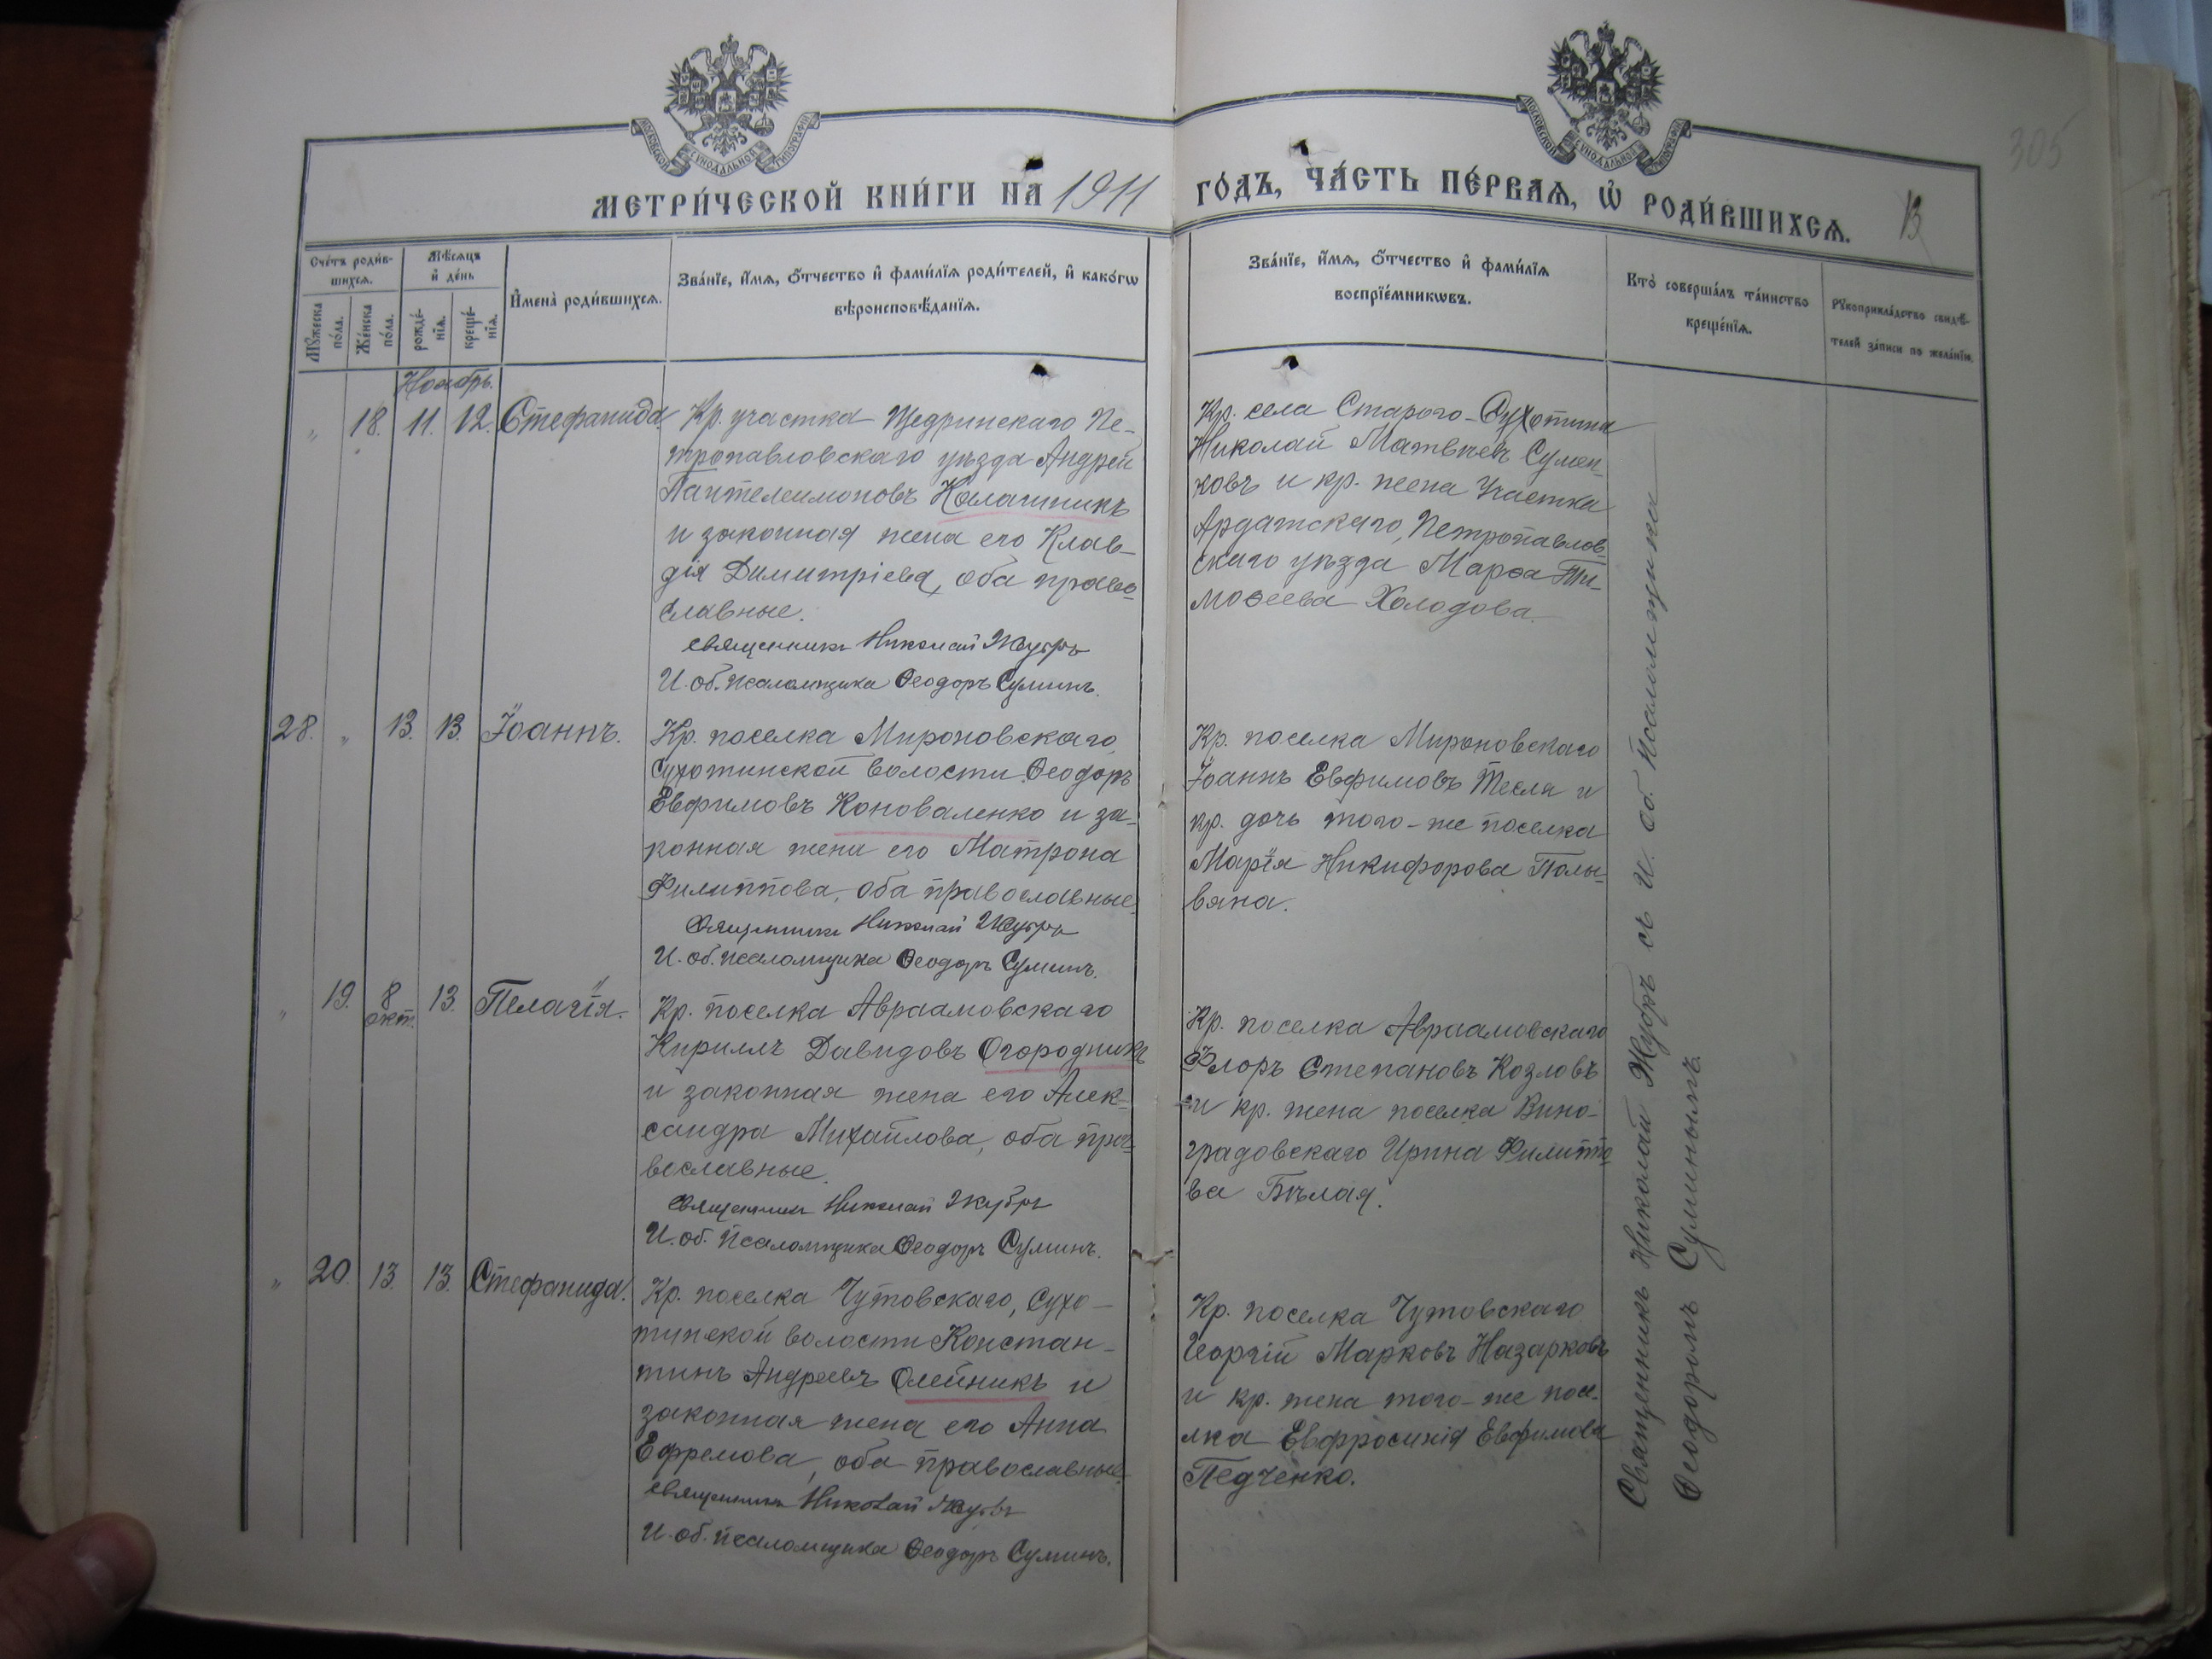 МОСКОВСКОЙ СѴНОДАЛЬНОЙ ТИПОГРАФІИ
МОСКОВСКОЙ СѴНОДАЛЬНОЙ ТИПОГРАФІИ
305
МЕТРИ́ЧЕСКОЙ КНИ́ГИ НА 1911
ГО́ДЪ, ЧА́СТЬ ПЕ́РВАѦ, Ѡ҆ РОДИ́ВШИХСѦ.
13
Сче́тъ роди́в-
шихсѧ.
Мѣ́сѧцъ
и҆ де́нь
Мꙋ́жеска
по́ла.
Же́нска
по́ла.
рожде́-
нїѧ.
креще́-
нїѧ.
И҆мена̀ роди́вшихсѧ.
Зва́нїе, и҆́мѧ, ѻ҆́тчество и҆ фами́лїѧ роди́телей, и҆ како́гѡ
вѣроисповѣ́данїѧ.
Зва́нїе, и҆́мѧ, ѻ҆́тчество и҆ фами́лїѧ
воспрїе́мникѡвъ.
Кто̀ соверша́лъ та́инство
креще́нїѧ.
Рꙋкоприкла́дство свидѣ́-
телей за́писи по жела́нїю.
Ноябрь.
" 18. 11. 12. Стефанида
Кр. участка Щедринскаго Пе-
тропавловскаго уѣзда Андрей
Пантелеимоновъ Калашникъ
и законная жена его Клав-
дія Димитріева, оба право-
славные.
Священникъ Николай Жубръ
И. об. псаломщика Ѳеодоръ Суминъ.
Кр. села Старого-Сухотина
Николай Матвѣевъ Сумен-
ковъ и кр. жена участка
Ардатскаго, Петропавлов-
скаго уѣзда Марѳа Ти-
моѳеева Холодова.
28. " 13. 13. Іоаннъ.
Кр. поселка Мироновскаго,
Сухотинской волости Ѳеодоръ
Евфимовъ Коноваленко и за-
конная жена его Матрона
Филиппова, оба православные.
Священникъ Николай Жубръ
И. об. псаломщика Ѳеодоръ Суминъ.
Кр. поселка Мироновскаго
Іоаннъ Евфимовъ Тесля и
кр. дочь того-же поселка
Марія Никифорова Полы-
вяна.
" 19. 8 окт. 13. Пелагія.
Кр. поселка Авраамовскаго
Кириллъ Давидовъ Огородникъ
и законная жена его Алек-
сандра Михайлова, оба пра-
вославные.
Священникъ Николай Жубръ
И. об. псаломщика Ѳеодоръ Суминъ.
Кр. поселка Авраамовскаго
Флоръ Степановъ Козловъ
и кр. жена поселка Вино-
градовскаго Ирина Филиппо-
ва Бѣлая.
" 20. 13. 13. Стефанида.
Кр. поселка Чутовскаго, Сухо-
тинской волости Констан-
тинъ Андреевъ Олейникъ и
законная жена его Анна
Ефремова, оба православные.
Священникъ Николай Жубръ
И. об. псаломщика Ѳеодоръ Суминъ.
Кр. поселка Чутовскаго
Георгій Марковъ Назарковъ
и кр. жена того-же посе-
лка Евфросинія Евфимова
Педченко.
Священникъ Николай Жубръ съ И. об. Псаломщика
Ѳеодоромъ Суминымъ.